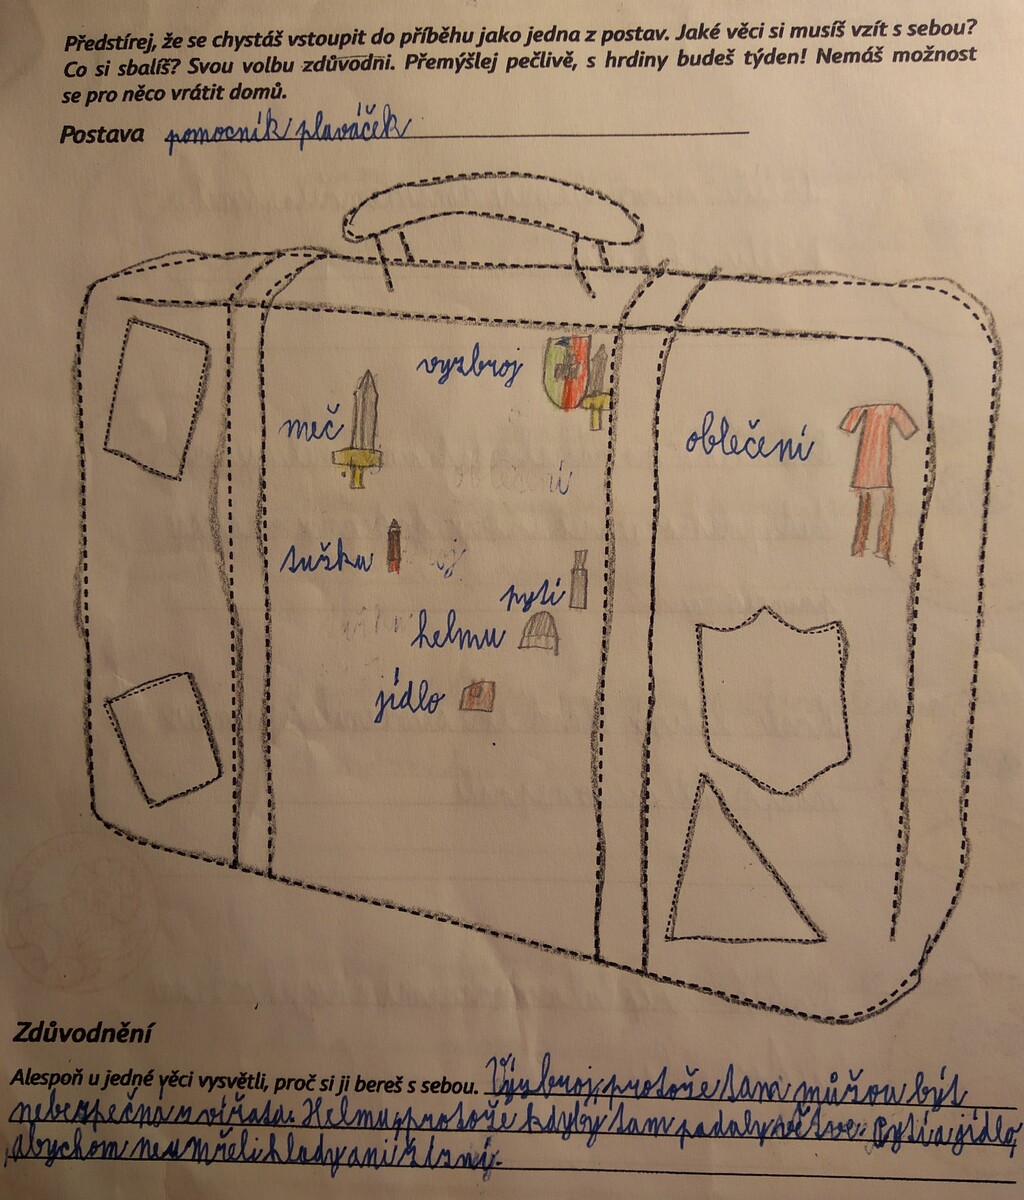 Předstírej, že se chystáš vstoupit do příběhu jako jedna z postav. Jaké věci si musíš vzít s sebou?
Co si sbalíš? Svou volbu zdůvodni. Přemýšlej pečlivě, s hrdiny budeš týden! Nemáš možnost
se pro něco vrátit domů.
Postava pomocník plaváček
vyzbroj
meč
oblečení
tušku
pytí
helmu
jídlo
Zdůvodnění
Alespoň u jedné věci vysvětli, proč si ji bereš s sebou. Výzbroj, protože tam můžou být
nebezpečna zvířata. Helmu, protože kdyby tam padaly větve. Pytí a jídlo,
abychom neumřeli hlady ani žízní.